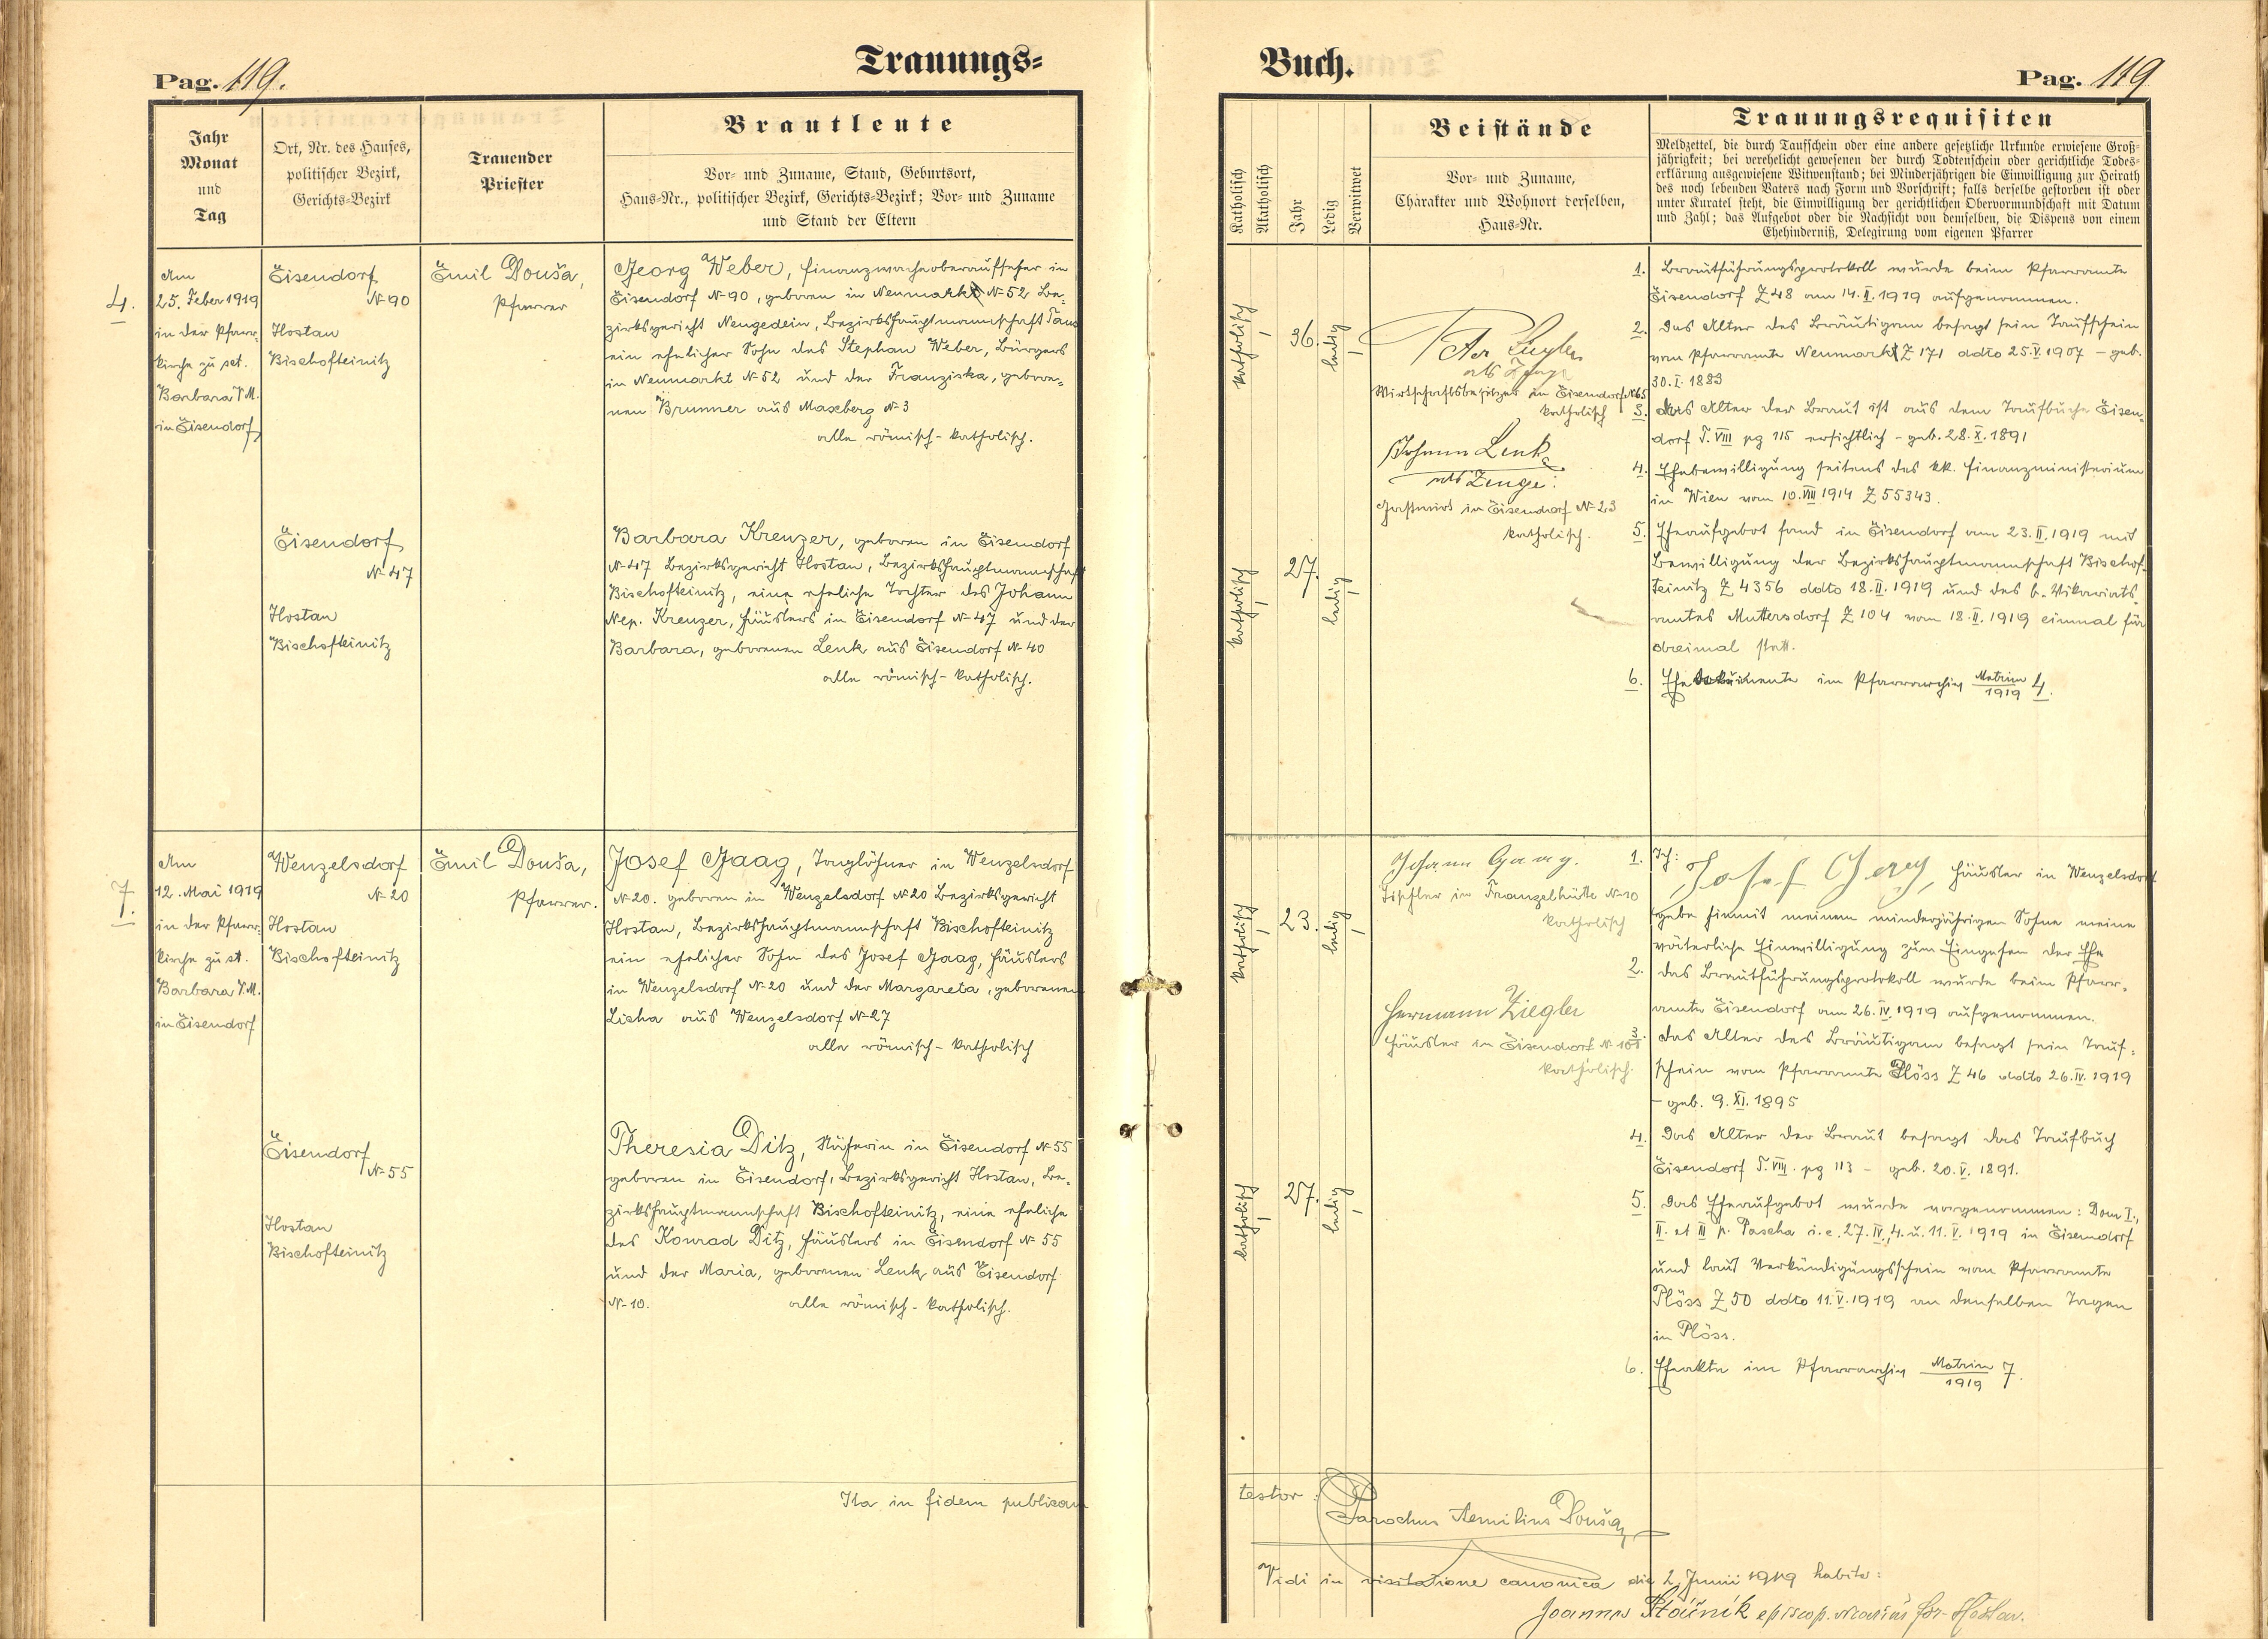 Pag. 119.
Trauungs=
Jahr
Monat
und
Tag
Ort, Nr. des Hauses,
politischer Bezirk,
Gerichts=Bezirk
Trauender
Priester
Brautleute
Vor= und Zuname, Stand, Geburtsort,
Haus=Nr., politischer Bezirk, Gerichts=Bezirk; Vor= und Zuname
und Stand der Eltern
4.
Am
25. Feber 1919
in der Pfarr-
kirche zu sct.
Barbara V.M.
in Eisendorf
Eisendorf
N-90
Hostan
Bischofteinitz
Emil Douša,
Pfarrer
Georg Weber, Finanzwachoberaufseher in
Eisendorf N-90, geboren in Neumarkt N-52 Be-
zirksgericht Neugedein, Bezirkshauptmannschaft Taus
ein ehelicher Sohn des Stephan Weber, Bürgers
in Neumarkt N-52 und der Franziska, gebore-
nen Brunner aus Maxberg N-3
alle römisch-katholisch.
Eisendorf
N-47
Hostan
Bischofteinitz
Barbara Kreuzer, geboren in Eisendorf
N-47 Bezirksgericht Hostan, Bezirkshauptmannschaft
Bischofteinitz, eine eheliche Tochter des Johann
Nep. Kreuzer, Häuslers in Eisendorf N-47 und der
Barbara, geborenen Lenk aus Eisendorf N-40
alle römisch-katholisch.
7.
Am
12. Mai 1919
in der Pfarr-
kirche zu st.
Barbara V.M.
in Eisendorf
Wenzelsdorf
N-20
Hostan
Bischofteinitz
Emil Douša,
Pfarrer.
Josef Gaag, Taglöhner in Wenzelsdorf
N-20. geboren in Wenzelsdorf N-20 Bezirksgericht
Hostan, Bezirkshauptmannschaft Bischofteinitz
ein ehelicher Sohn des Josef Gaag, Häuslers
in Wenzelsdorf N-20 und der Margareta, geborenen
Licha aus Wenzelsdorf N-27
alle römisch-katholisch
Eisendorf
N-55
Hostan
Bischofteinitz
Theresia Ditz, Näherin in Eisendorf N-55
geboren in Eisendorf, Bezirksgericht Hostan, Be-
zirkshauptmannschaft Bischofteinitz, eine eheliche
des Konrad Ditz, Häuslers in Eisendorf N-55
und der Maria, geborenen Lenk aus Eisendorf
N-10. alle römisch-katholisch.
Ita in fidem publicam
Buch.
Pag. 119
Katholisch
Akatholisch
Jahr
Ledig
Verwitwet
Beistände
Vor= und Zuname,
Charakter und Wohnort derselben,
Haus=Nr.
Trauungsrequisiten
Meldzettel, die durch Taufschein oder eine andere gesetzliche Urkunde erwiesene Groß=
jährigkeit; bei verehelicht gewesenen der durch Todtenschein oder gerichtliche Todes=
erklärung ausgewiesene Witwenstand; bei Minderjährigen die Einwilligung zur Heirath
des noch lebenden Vaters nach Form und Vorschrift; falls derselbe gestorben ist oder
unter Kuratel steht, die Einwilligung der gerichtlichen Obervormundschaft mit Datum
und Zahl; das Aufgebot oder die Nachsicht von demselben, die Dispens von einem
Ehehinderniß, Delegirung vom eigenen Pfarrer
katholisch
36.
ledig
Peter
als Zeuge
Wirtschaftsbesitzer in Eisendorf N-65
katholisch
Johann Lenk
als Zeuge:
Gastwirt in Eisendorf N-23
katholisch.
katholisch
27.
ledig
1. Brautführungsprotokoll wurde beim Pfarramte
Eisendorf Z 48 am 14.II.1919 aufgenommen.
2. das Alter des Bräutigam besagt sein Taufschein
vom Pfarramte Neumarkt Z 171 ddto 25.V.1907 - geb.
30.I.1883
3. das Alter der Braut ist aus dem Taufbuche Eisen-
dorf T.VIII pg 115 ersichtlich - geb. 28.X.1891
4. Ehebewilligung seitens des kk. Finanzministerium
in Wien vom 10.VIII 1914 Z 55343.
5. Eheaufgebot fand in Eisendorf am 23.II.1919 mit
Bewilligung der Bezirkshauptmannschaft Bischof-
teinitz Z 4356 ddto 18.II.1919 und des b. Vikariats-
amtes Muttersdorf Z 104 vom 18.II.1919 einmal für
dreimal statt.
6. Ehedokumente im Pfarrarchiv Matrim 1919 4.
katholisch
23.
ledig
Johann Gaag.
Tischler in Franzelhütte N-10
katholisch
Hermann Ziegler
Häusler in Eisendorf N-101
katholisch.
katholisch
27.
ledig
1. Ich: Josef Gaag, Häusler in Wenzelsdorf
gebe hiemit meinem minderjährigen Sohne meine
väterliche Einwilligung zum Eingehen der Ehe
2. das Brautführungsprotokoll wurde beim Pfarr-
amte Eisendorf am 26.IV.1919 aufgenommen.
3. das Alter des Bräutigam besagt sein Tauf-
schein vom Pfarramte Plöss Z 46 ddto 26.IV.1919
- geb. 9.XI.1895
4. Das Alter der Braut besagt das Taufbuch
Eisendorf T.VIII. pg 113 - geb. 20.V.1891.
5. das Eheaufgebot wurde vorgenommen: Dom I.,
II. et III p. Pascha i.e. 27.IV, 4. u. 11.V.1919 in Eisendorf
und laut Verkündigungsschein vom Pfarramte
Plöss Z 50 ddto 11.V.1919 an denselben Tagen
in Plöss.
6. Eheakte im Pfarrarchiv Matrim 1919 7.
testor:
Parochus Aemilius Douša
Vidi in visitatione canonica die 2. Junii 1919 habita:
Joannes episcop. vicarius